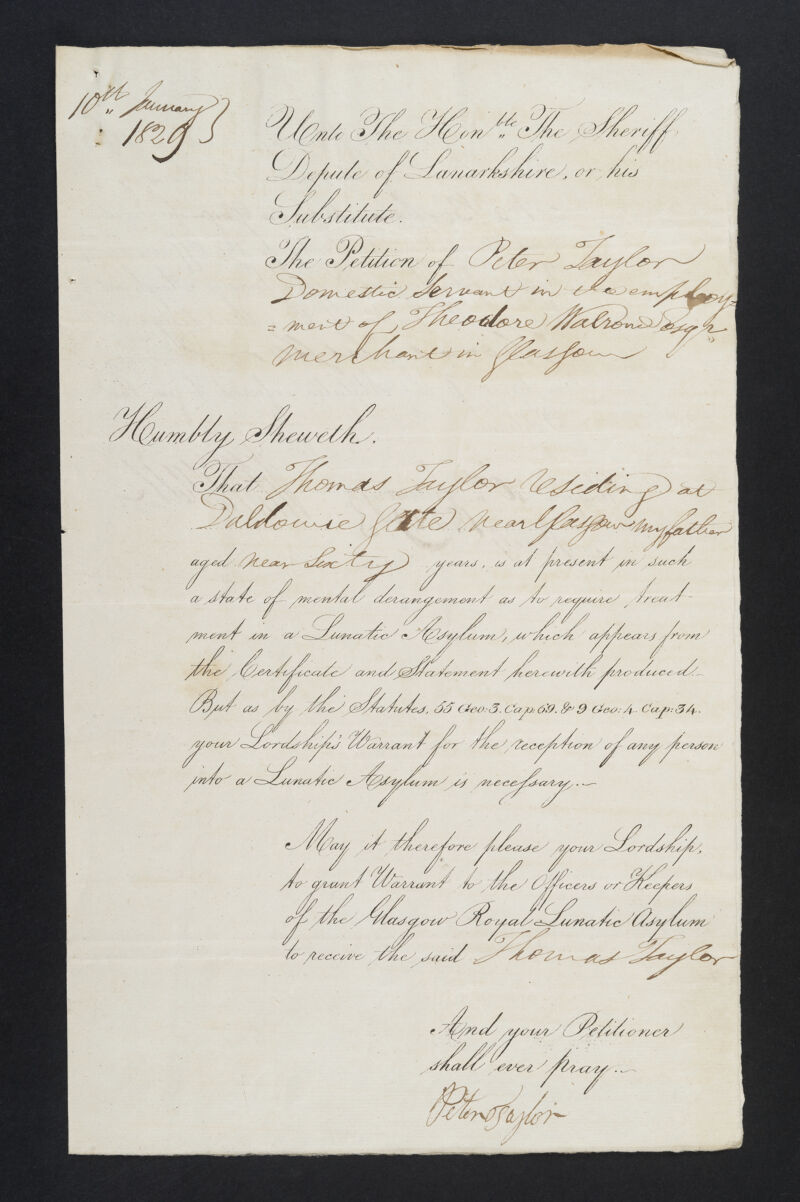 10th January
1829
Unto The Honble. The Sheriff
Depute of Lanarkshire, or his
Substitute.
The Petition of Peter Taylor
Domestic Servant in the employ=
=ment of Theodore Walrond Esqr.
Merchant in Glasgow
Humbly Sheweth.
That Thomas Taylor residing at
Daldowie Gate near Glasgow my father
aged near Sixty years, is at present in such
a state of mental derangement as to require treat-
ment in a Lunatic Asylum, which appears from
the Certificate and Statement herewith produced_
But as by the Statutes, 55 Geo: 3. Cap: 69. & 9 Geo: 4. Cap: 34.
your Lordship's Warrant for the reception of any person
into a Lunatic Asylum is necessary.—
May it therefore please your Lordship,
to grant Warrant to the Officers or Keepers
of the Glasgow Royal Lunatic Asylum
to receive the said Thomas Taylor
And your Petitioner
shall ever pray.—
Peter Taylor